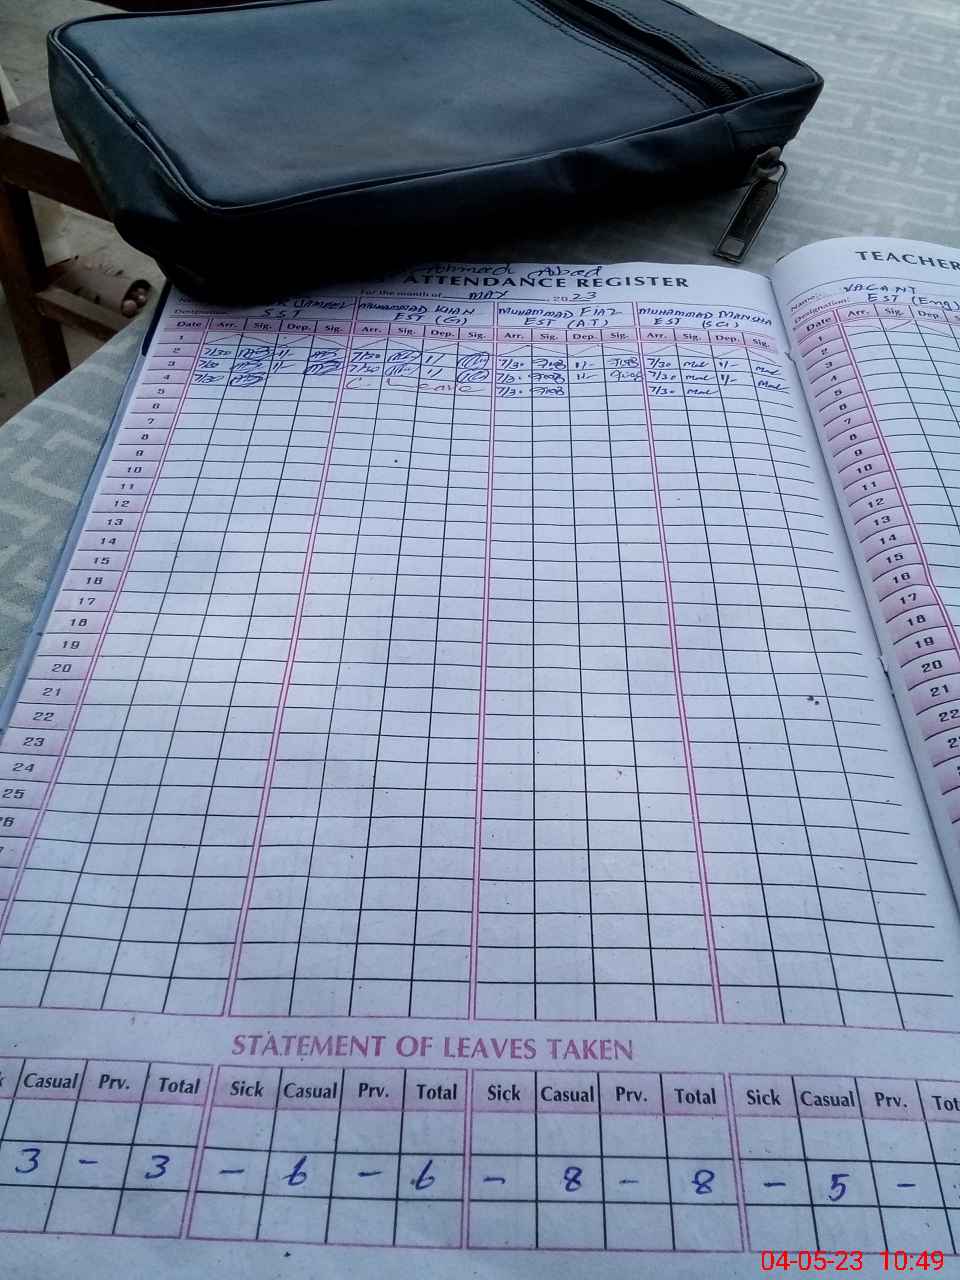 Ahmad Abad
ATTENDANCE REGISTER
TEACHER
For the month of MAY, 2023
MUHAMMAD KHAN MUHAMMAD FIAZ MUHAMMAD MANSHA Name: VACANT
Designation: SST EST (G) EST (A.T) EST (SCI) Designation: EST (Eng)
Date Arr. Sig. Dep. Sig. Arr. Sig. Dep. Sig. Arr. Sig. Dep. Sig. Arr. Sig. Dep. Sig. Date Arr. Sig. Dep.
1 1
2 7/30 1/- 7/30 1/ 7/30 1/- 7/30 1/- 2
3 7/30 1/- 7/30 1/ 7/30 1/- 7/30 1/- 3
4 7/30 C. Leave 7/30 7/30 4
5 5
6 6
7 7
8 8
9 9
10 10
11 11
12 12
13 13
14 14
15 15
16 16
17 17
18 18
19 19
20 20
21 21
22 22
23
24
25
26
STATEMENT OF LEAVES TAKEN
Casual Prv. Total Sick Casual Prv. Total Sick Casual Prv. Total Sick Casual Prv.
3 - 3 - 6 - 6 - 8 - 8 - 5 -
04-05-23 10:49